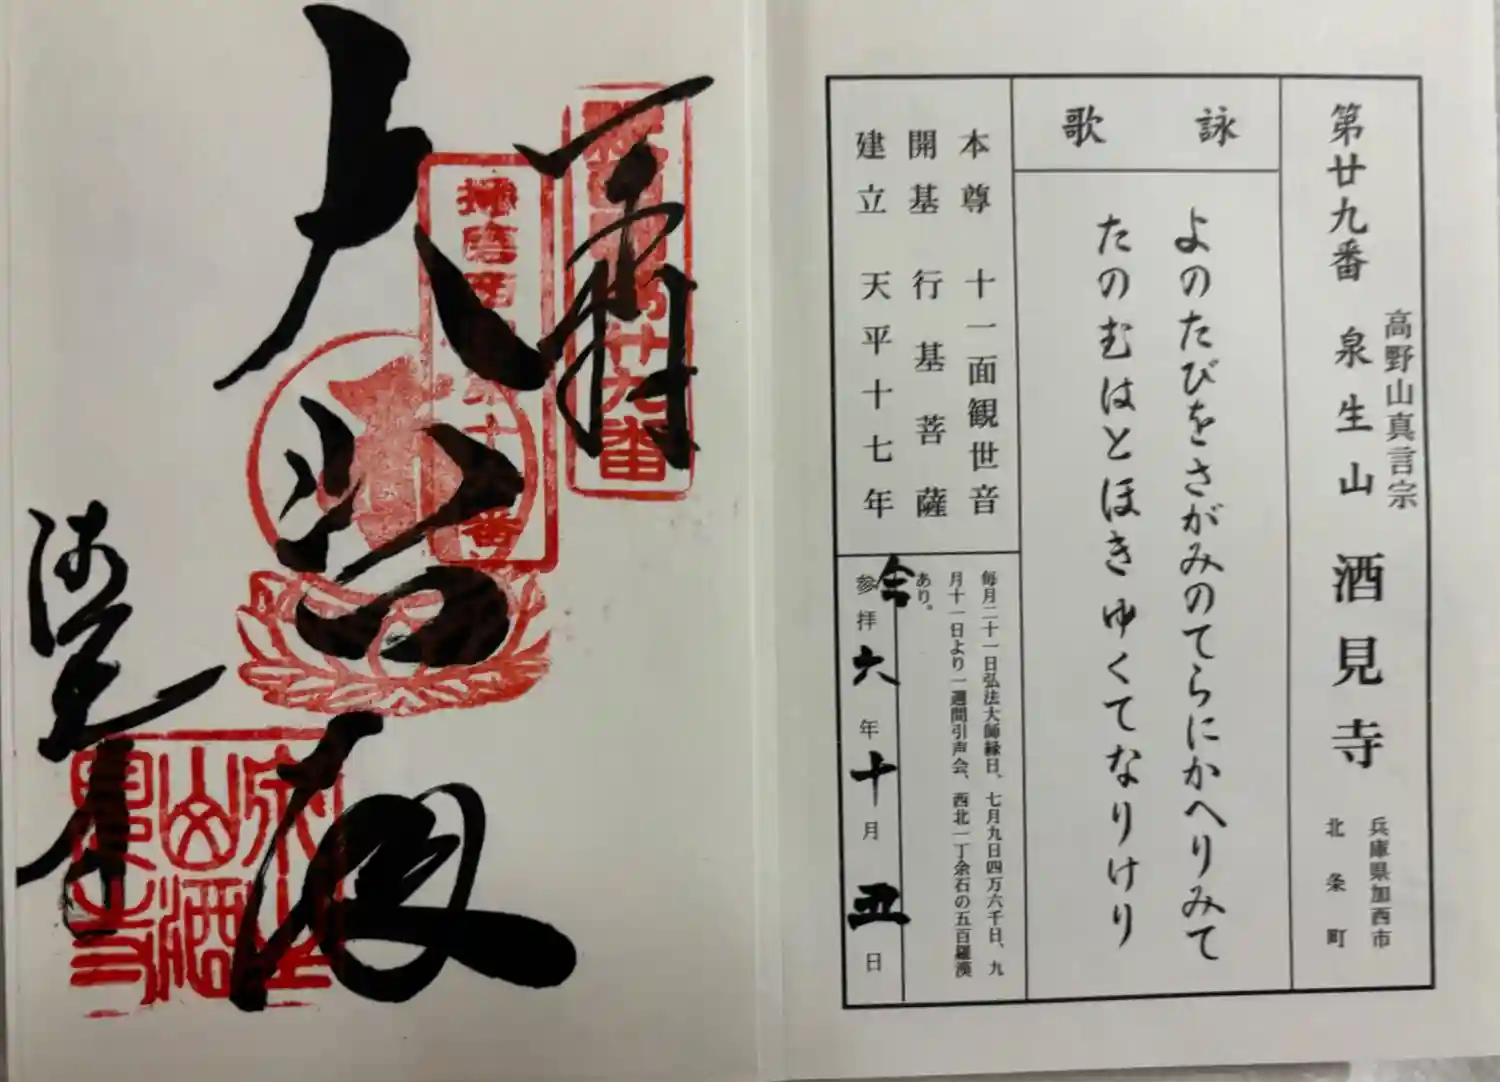 第廿九番 泉生山 酒見寺
高野山真言宗
兵庫県加西市
北条町
詠歌
よのたびをさがみのてらにかへりみて
たのむはとほきゆくてなりけり
本尊 十一面観世音
開基 行基菩薩
建立 天平十七年
毎月二十一日弘法大師縁日、七月九日四万六千日、九
月十一日より一週間引声会、西北一丁余石の五百羅漢
あり。
参拝 令六年十月五日
廿九番
奉拝
播磨
大悲殿
酒見寺
泉生山酒見寺